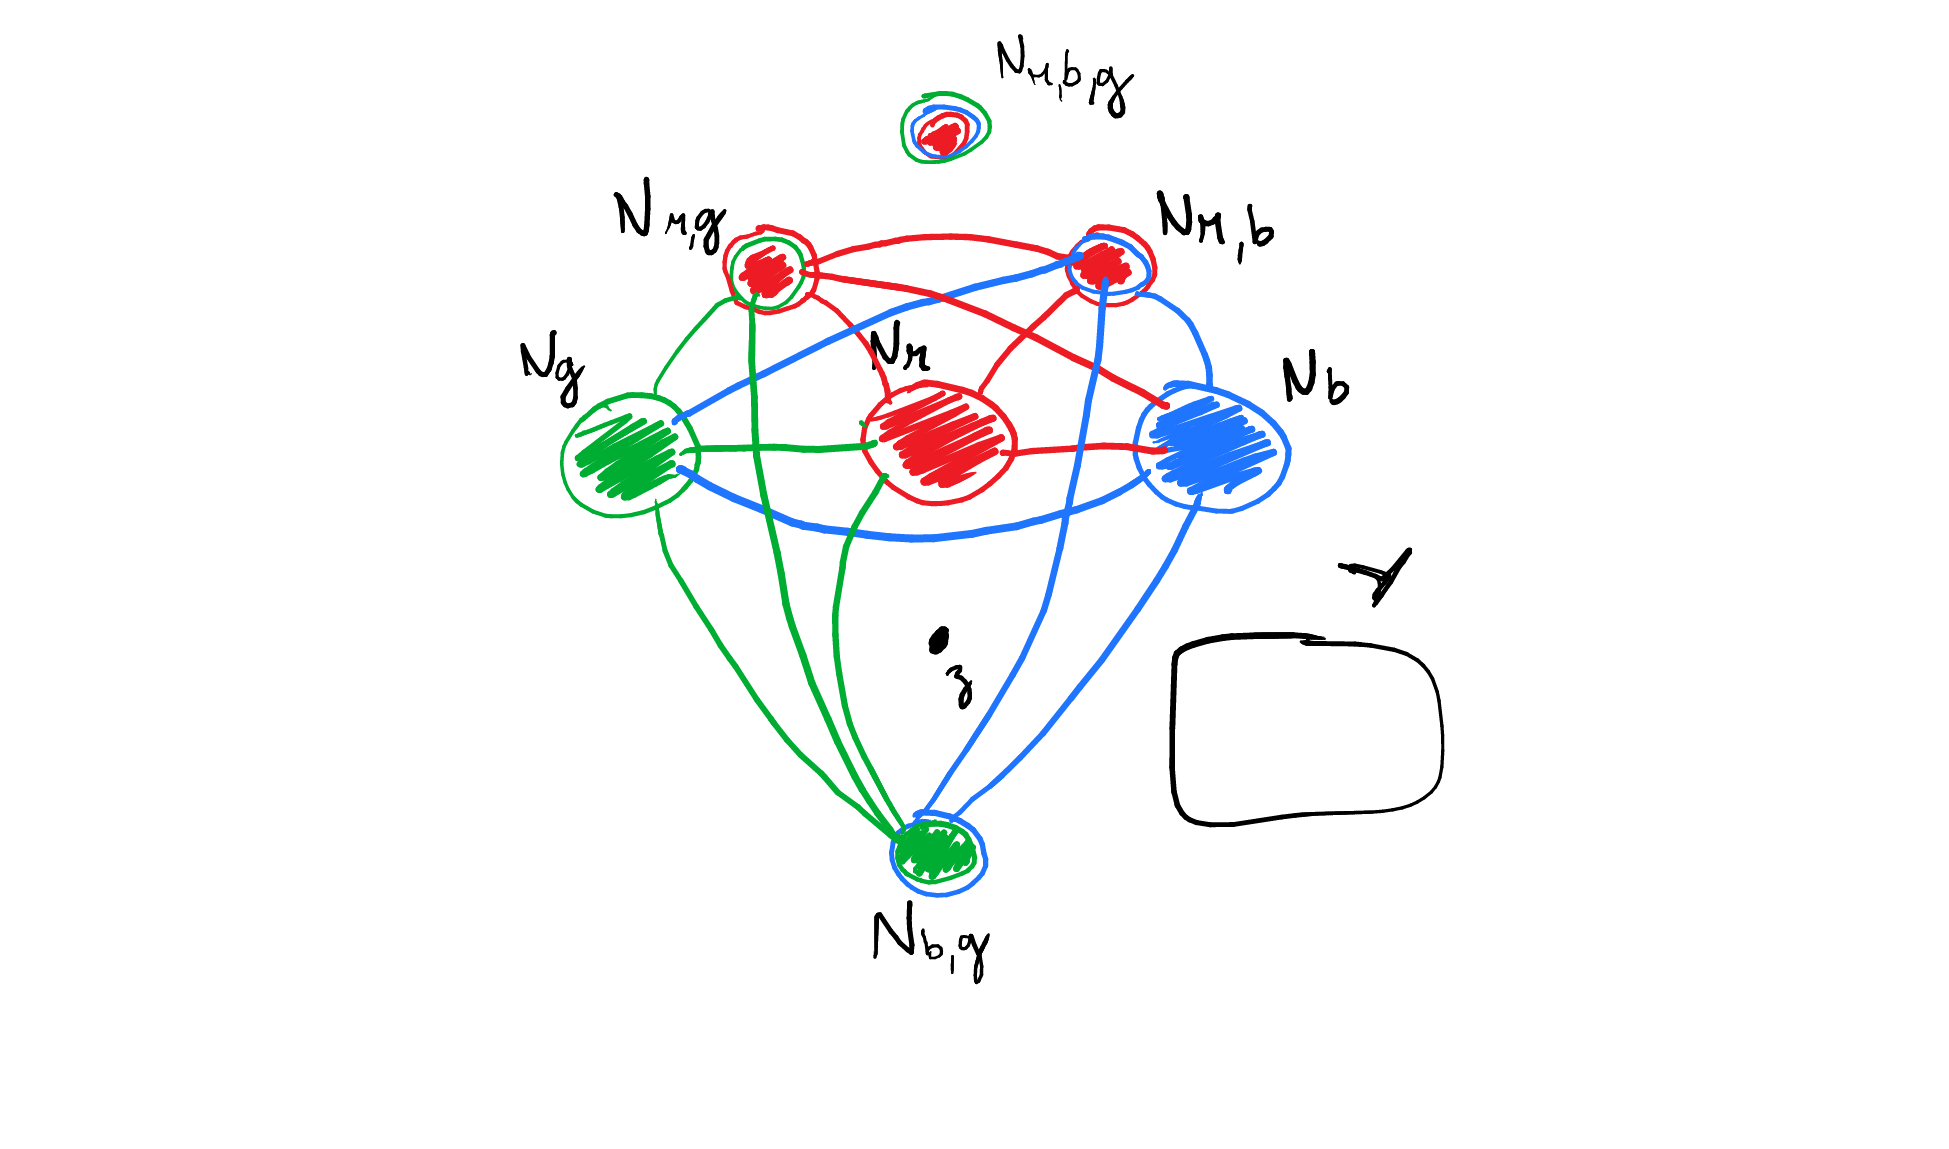 N_{r,b,g}
N_{r,g}
N_{r,b}
N_g
N_r
N_b
Y
z
N_{b,g}